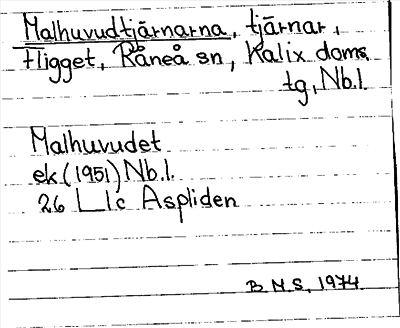 Malhuvudtjärnarna, tjärnar,
Fligget, Råneå sn, Kalix doms
tg, Nb.l.
Malhuvudet
ek (1951) Nb.l.
26 L 1c Aspliden
B.N.S, 1974